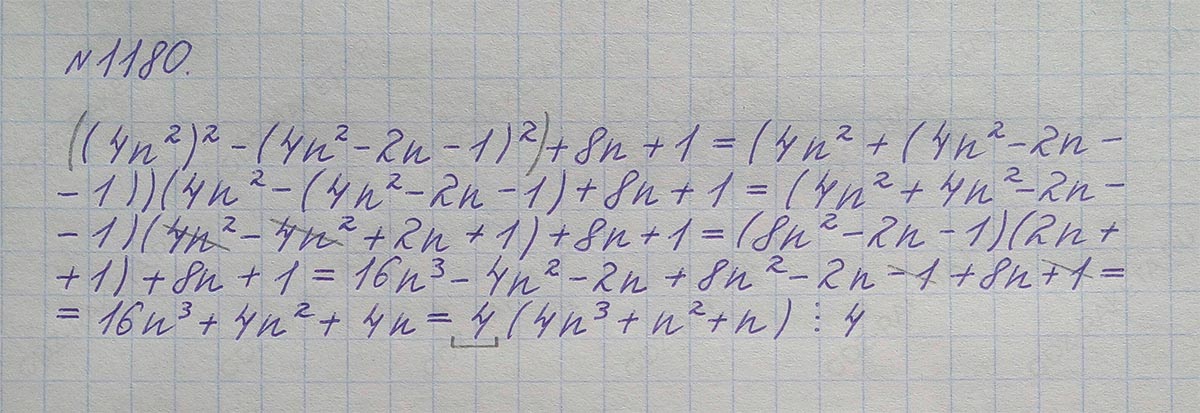 №1180.
((4n²)² - (4n² - 2n - 1)²) + 8n + 1 = (4n² + (4n² - 2n -
- 1))(4n² - (4n² - 2n - 1) + 8n + 1 = (4n² + 4n² - 2n -
- 1)(4n² - 4n² + 2n + 1) + 8n + 1 = (8n² - 2n - 1)(2n +
+ 1) + 8n + 1 = 16n³ - 4n² - 2n + 8n² - 2n - 1 + 8n + 1 =
= 16n³ + 4n² + 4n = 4(4n³ + n² + n) ⋮ 4